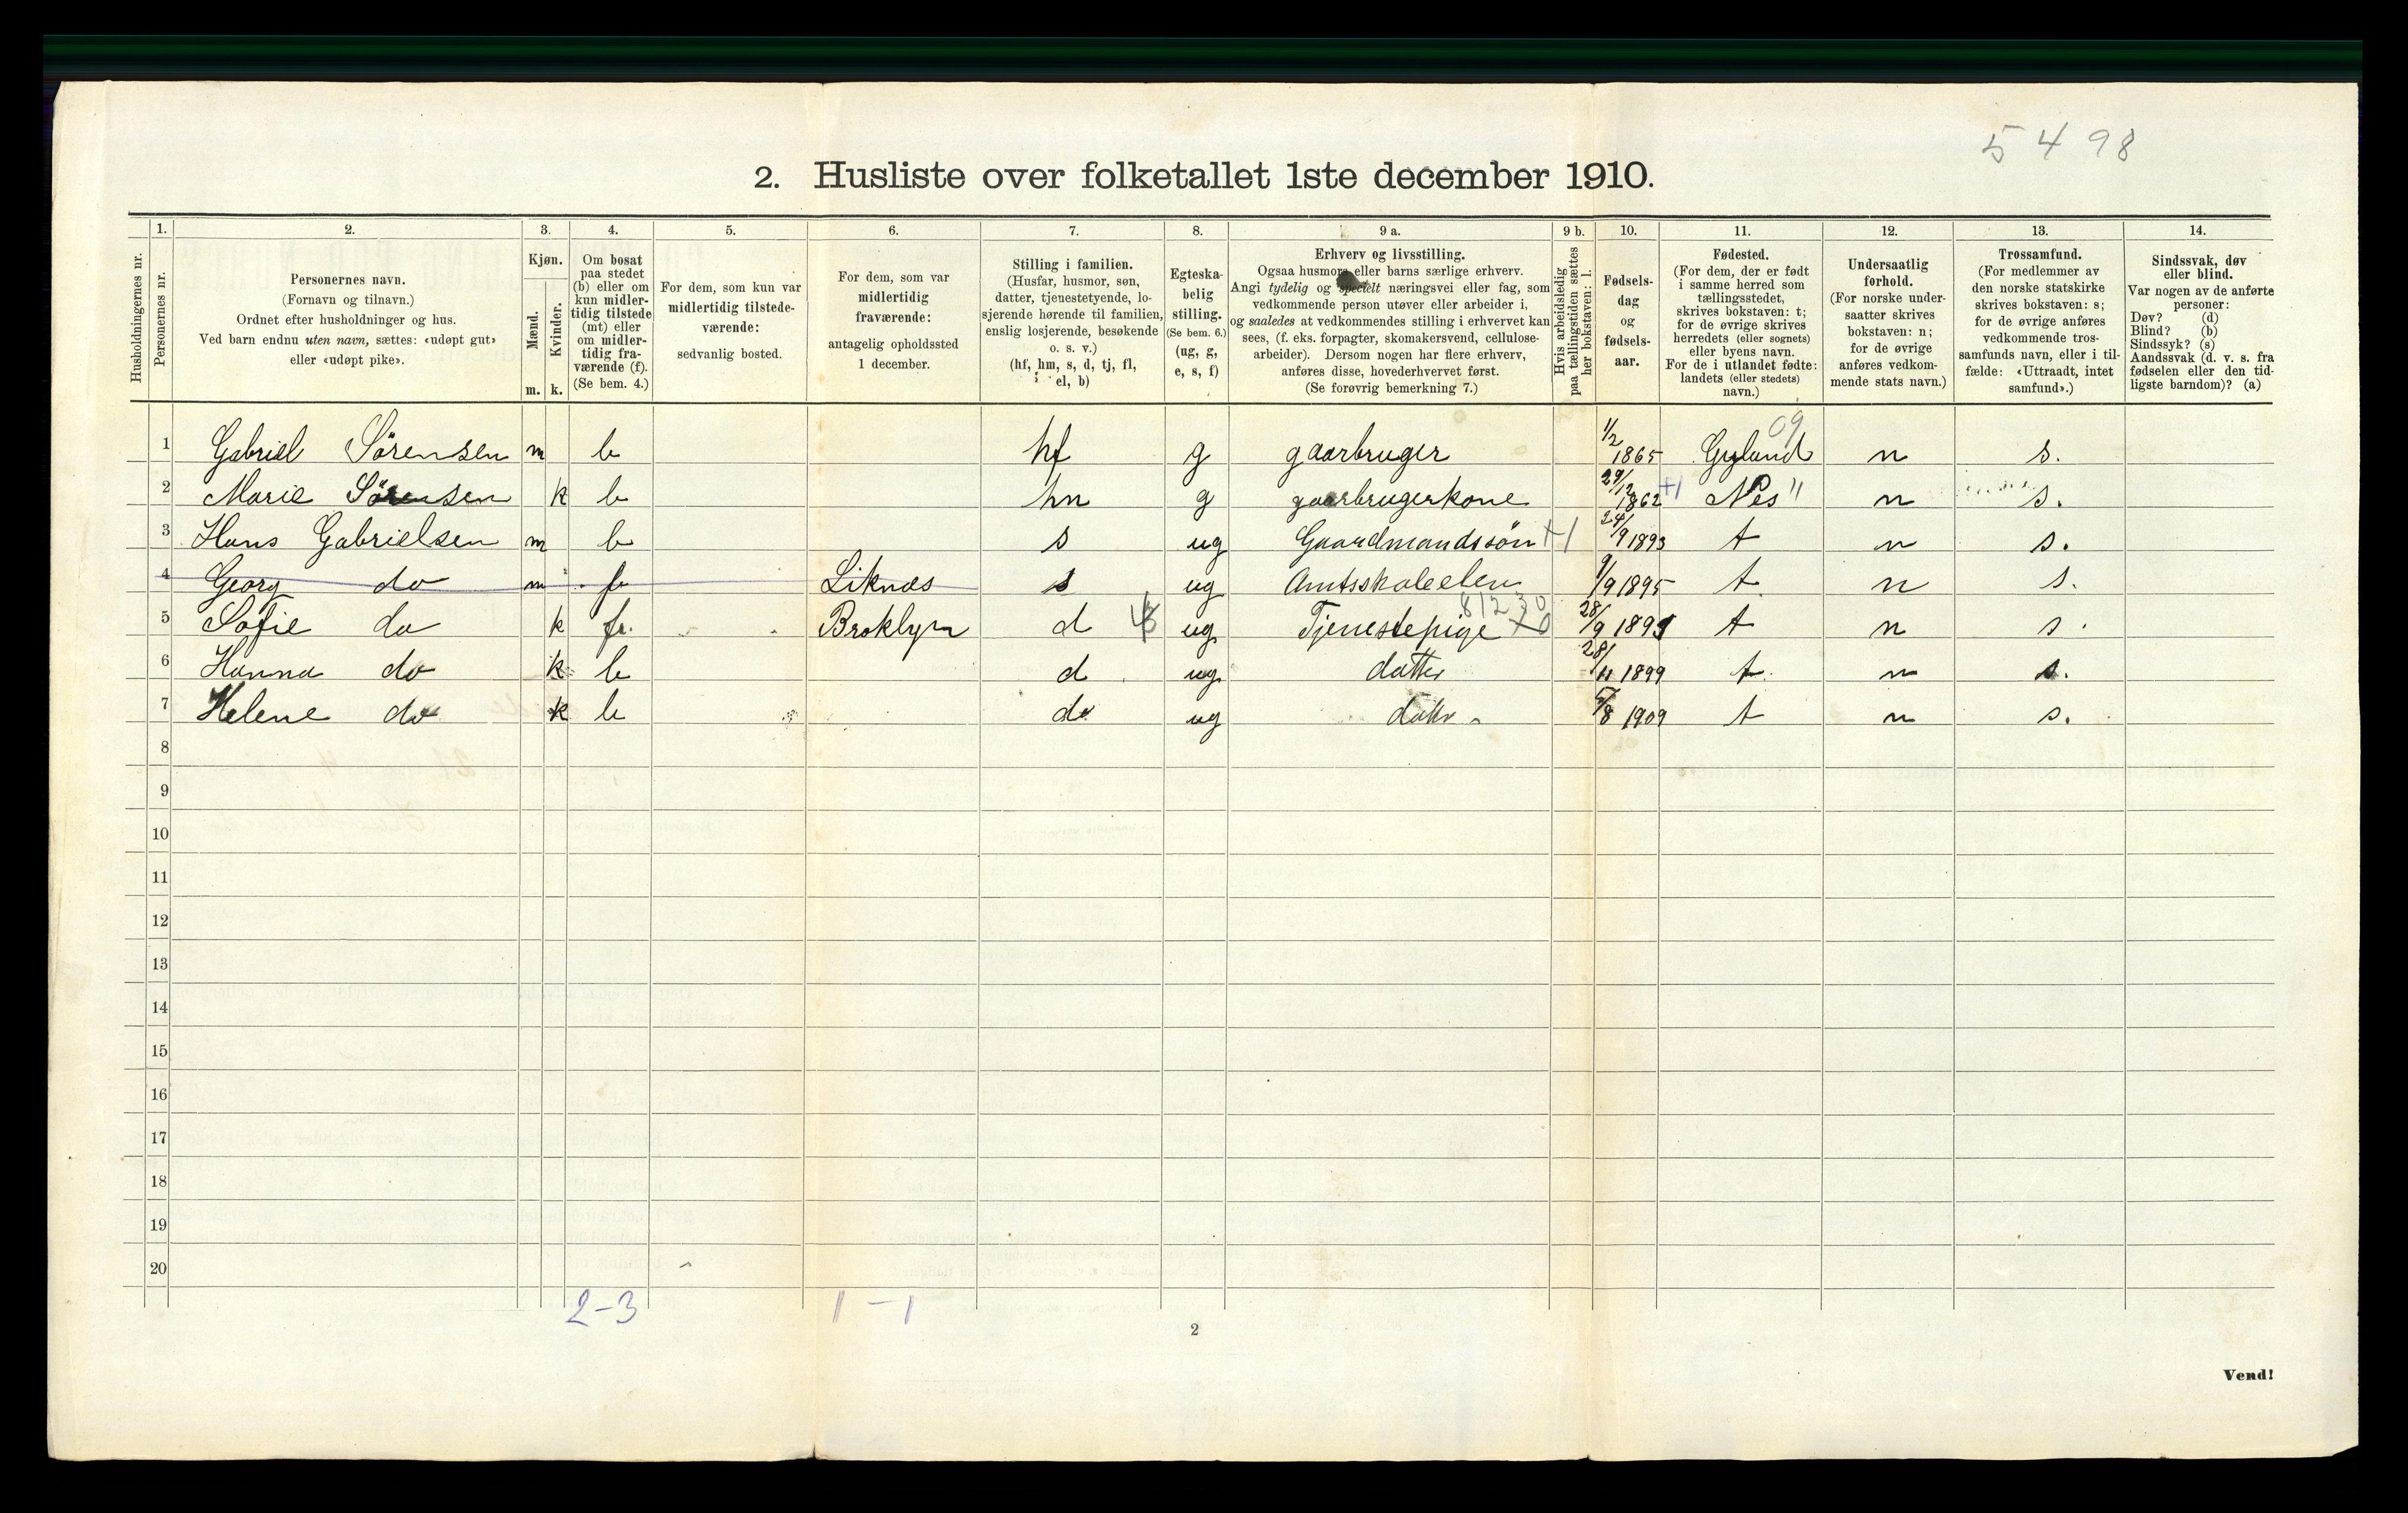 5 4 98
2. Husliste over folketallet 1ste december 1910.
1. 2. 3. 4. 5. 6. 7. 8. 9 a. 9 b. 10. 11. 12. 13. 14.
Husholdningernes nr.
Personernes nr.
Personernes navn.
(Fornavn og tilnavn.)
Ordnet efter husholdninger og hus.
Ved barn endnu uten navn, sættes: «udøpt gut»
eller «udøpt pike».
Kjøn.
Mænd.
Kvinder.
m. k.
Om bosat
paa stedet
(b) eller om
kun midler-
tidig tilstede
(mt) eller
om midler-
tidig fra-
værende (f).
(Se bem. 4.)
For dem, som kun var
midlertidig tilstede-
værende:
sedvanlig bosted.
For dem, som var
midlertidig
fraværende:
antagelig opholdssted
1 december.
Stilling i familien.
(Husfar, husmor, søn,
datter, tjenestetyende, lo-
sjerende hørende til familien,
enslig losjerende, besøkende
o. s. v.)
(hf, hm, s, d, tj, fl,
el, b)
Egteska-
belig
stilling.
(Se bem. 6.)
(ug, g,
e, s, f)
Erhverv og livsstilling.
Ogsaa husmors eller barns særlige erhverv.
Angi tydelig og specielt næringsvei eller fag, som
vedkommende person utøver eller arbeider i,
og saaledes at vedkommendes stilling i erhvervet kan
sees, (f. eks. forpagter, skomakersvend, cellulose-
arbeider). Dersom nogen har flere erhverv,
anføres disse, hovederhvervet først.
(Se forøvrig bemerkning 7.)
Hvis arbeidsledig
paa tællingstiden sættes
her bokstaven: l.
Fødsels-
dag
og
fødsels-
aar.
Fødested.
(For dem, der er født
i samme herred som
tællingsstedet,
skrives bokstaven: t;
for de øvrige skrives
herredets (eller sognets)
eller byens navn.
For de i utlandet fødte:
landets (eller stedets)
navn.)
Undersaatlig
forhold.
(For norske under-
saatter skrives
bokstaven: n;
for de øvrige
anføres vedkom-
mende stats navn.)
Trossamfund.
(For medlemmer av
den norske statskirke
skrives bokstaven: s;
for de øvrige anføres
vedkommende tros-
samfunds navn, eller i til-
fælde: «Uttraadt, intet
samfund».)
Sindssvak, døv
eller blind.
Var nogen av de anførte
personer:
Døv? (d)
Blind? (b)
Sindssyk? (s)
Aandssvak (d. v. s. fra
fødselen eller den tid-
ligste barndom)? (a)
09
1 Gabriel Sörensen m b hf g gaarbruger 1/2 1865 Gyland n s.
2 Marie Sörensen k b hm g gaarbrugerkone 29/12 1862 +1 Nes " n s.
3 Hans Gabrielsen m b s ug Gaardmandssön +1 24/9 1893 t n s.
4 Georg do m f Liknes s ug Amtsskoleelev 9/9 1895 t n s.
81230
5 Sofie do k fr. Broklyn d ug Tjenestepige 28/9 t n s.
6 Hanna do k b d ug datter 28/11 1899 t. n s.
7 Helene do k b do ug datr. 5/8 1909 t n s.
8
9
10
11
12
13
14
15
16
17
18
19
20
2-3 1-1
2
Vend!